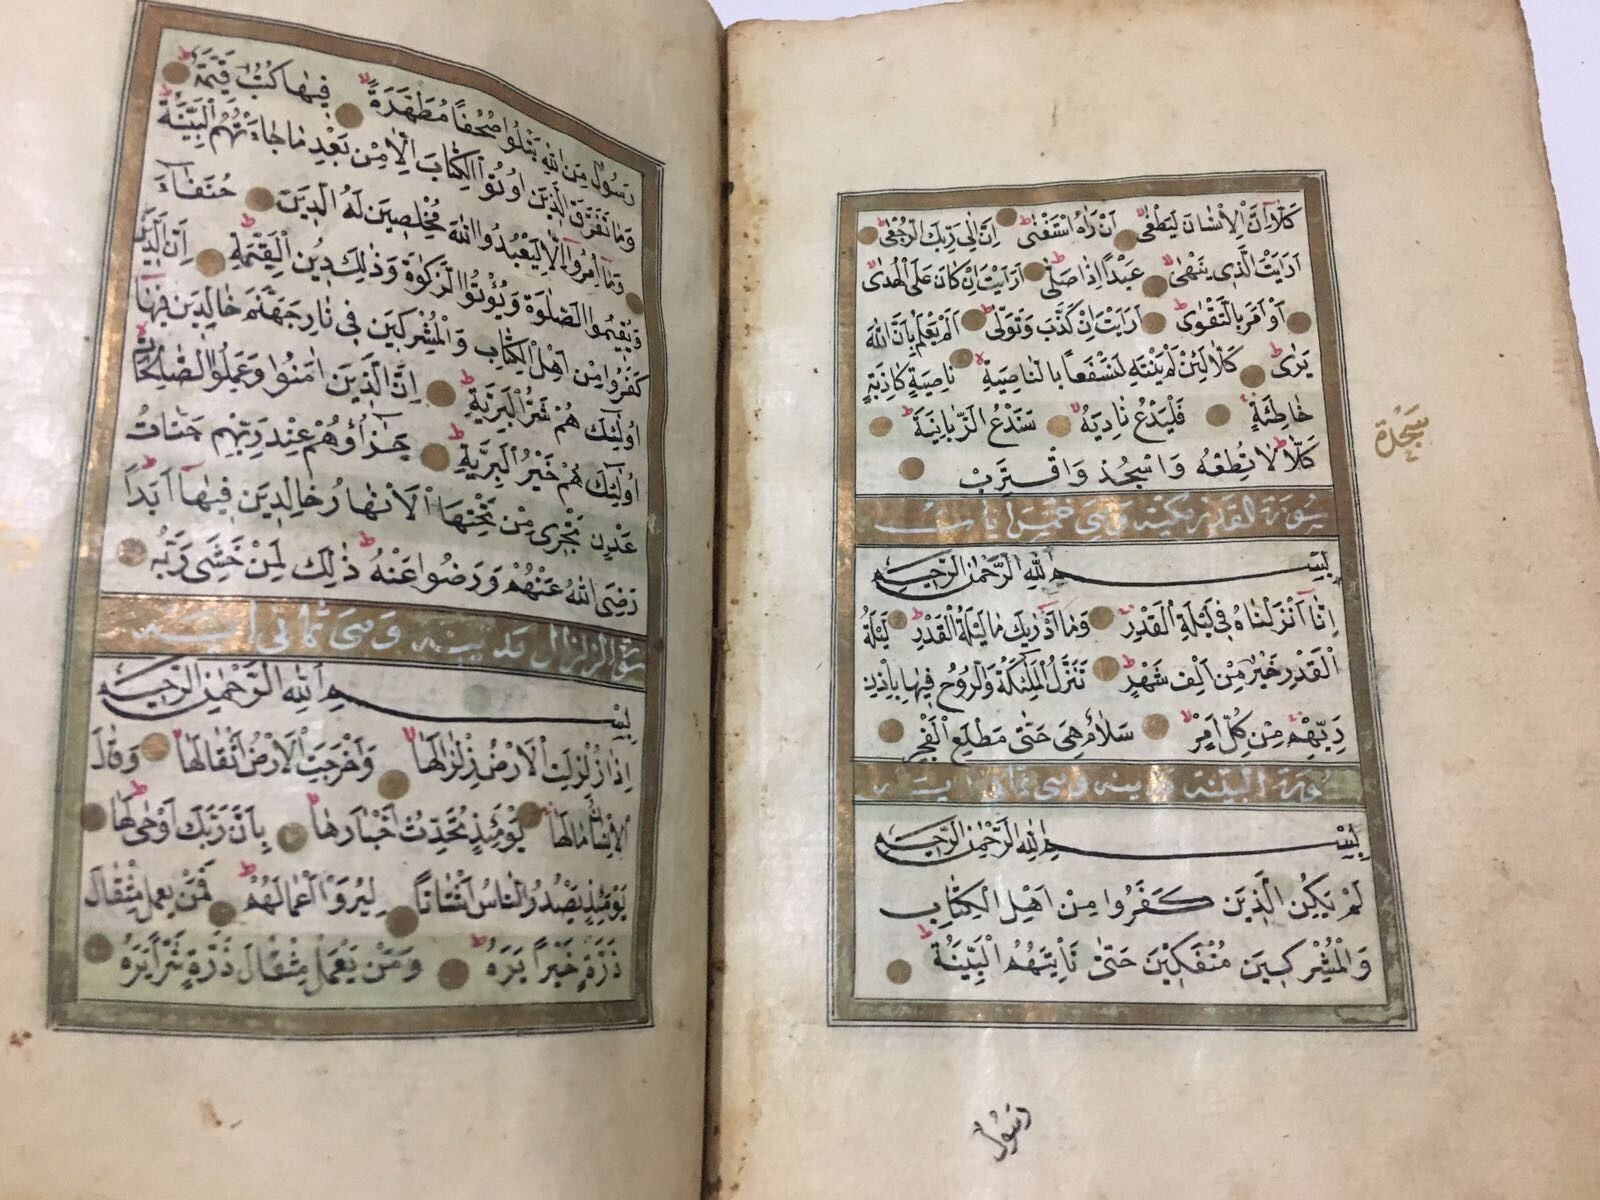 كَلَّا اِنَّ الْاِنْسَانَ لَيَطْغٰى اَنْ رَاٰهُ اسْتَغْنٰى اِنَّ اِلٰى رَبِّكَ الرُّجْعٰى
اَرَاَيْتَ الَّذِى يَنْهٰى عَبْدًا اِذَا صَلّٰى اَرَاَيْتَ اِنْ كَانَ عَلَى الْهُدٰى
اَوْ اَمَرَ بِالتَّقْوٰى اَرَاَيْتَ اِنْ كَذَّبَ وَتَوَلّٰى اَلَمْ يَعْلَمْ بِاَنَّ اللّٰهَ
يَرٰى كَلَّا لَئِنْ لَمْ يَنْتَهِ لَنَسْفَعًا بِالنَّاصِيَةِ نَاصِيَةٍ كَاذِبَةٍ
خَاطِئَةٍ فَلْيَدْعُ نَادِيَهُ سَنَدْعُ الزَّبَانِيَةَ
كَلَّا لَا تُطِعْهُ وَاسْجُدْ وَاقْتَرِبْ
سجدة
سورة القدر مكية وهى خمس ايات
بِسْمِ اللّٰهِ الرَّحْمٰنِ الرَّحِيمِ
اِنَّا اَنْزَلْنَاهُ فِى لَيْلَةِ الْقَدْرِ وَمَا اَدْرٰيكَ مَا لَيْلَةُ الْقَدْرِ لَيْلَةُ
الْقَدْرِ خَيْرٌ مِنْ اَلْفِ شَهْرٍ تَنَزَّلُ الْمَلٰئِكَةُ وَالرُّوحُ فِيهَا بِاِذْنِ
رَبِّهِمْ مِنْ كُلِّ اَمْرٍ سَلَامٌ هِىَ حَتّٰى مَطْلَعِ الْفَجْرِ
سورة البينة مدينه وهى ثمانى ايت
بِسْمِ اللّٰهِ الرَّحْمٰنِ الرَّحِيمِ
لَمْ يَكُنِ الَّذِينَ كَفَرُوا مِنْ اَهْلِ الْكِتَابِ
وَالْمُشْرِكِينَ مُنْفَكِّينَ حَتّٰى تَاْتِيَهُمُ الْبَيِّنَةُ
رسول
رَسُولٌ مِنَ اللّٰهِ يَتْلُوا صُحُفًا مُطَهَّرَةً فِيهَا كُتُبٌ قَيِّمَةٌ
وَمَا تَفَرَّقَ الَّذِينَ اُوتُوا الْكِتَابَ اِلَّا مِنْ بَعْدِ مَا جَاءَتْهُمُ الْبَيِّنَةُ
وَمَا اُمِرُوا اِلَّا لِيَعْبُدُوا اللّٰهَ مُخْلِصِينَ لَهُ الدِّينَ حُنَفَاءَ
وَيُقِيمُوا الصَّلٰوةَ وَيُؤْتُوا الزَّكٰوةَ وَذٰلِكَ دِينُ الْقَيِّمَةِ اِنَّ الَّذِينَ
كَفَرُوا مِنْ اَهْلِ الْكِتَابِ وَالْمُشْرِكِينَ فِى نَارِ جَهَنَّمَ خَالِدِينَ فِيهَا
اُولٰئِكَ هُمْ شَرُّ الْبَرِيَّةِ اِنَّ الَّذِينَ اٰمَنُوا وَعَمِلُوا الصَّالِحَاتِ
اُولٰئِكَ هُمْ خَيْرُ الْبَرِيَّةِ جَزَاؤُهُمْ عِنْدَ رَبِّهِمْ جَنَّاتُ
عَدْنٍ تَجْرِى مِنْ تَحْتِهَا الْاَنْهَارُ خَالِدِينَ فِيهَا اَبَدًا
رَضِىَ اللّٰهُ عَنْهُمْ وَرَضُوا عَنْهُ ذٰلِكَ لِمَنْ خَشِىَ رَبَّهُ
سورة الزلزال مدنيه وهى ثمانى ايت
بِسْمِ اللّٰهِ الرَّحْمٰنِ الرَّحِيمِ
اِذَا زُلْزِلَتِ الْاَرْضُ زِلْزَالَهَا وَاَخْرَجَتِ الْاَرْضُ اَثْقَالَهَا وَقَالَ
الْاِنْسَانُ مَا لَهَا يَوْمَئِذٍ تُحَدِّثُ اَخْبَارَهَا بِاَنَّ رَبَّكَ اَوْحٰى لَهَا
يَوْمَئِذٍ يَصْدُرُ النَّاسُ اَشْتَاتًا لِيُرَوْا اَعْمَالَهُمْ فَمَنْ يَعْمَلْ مِثْقَالَ
ذَرَّةٍ خَيْرًا يَرَهُ وَمَنْ يَعْمَلْ مِثْقَالَ ذَرَّةٍ شَرًّا يَرَهُ